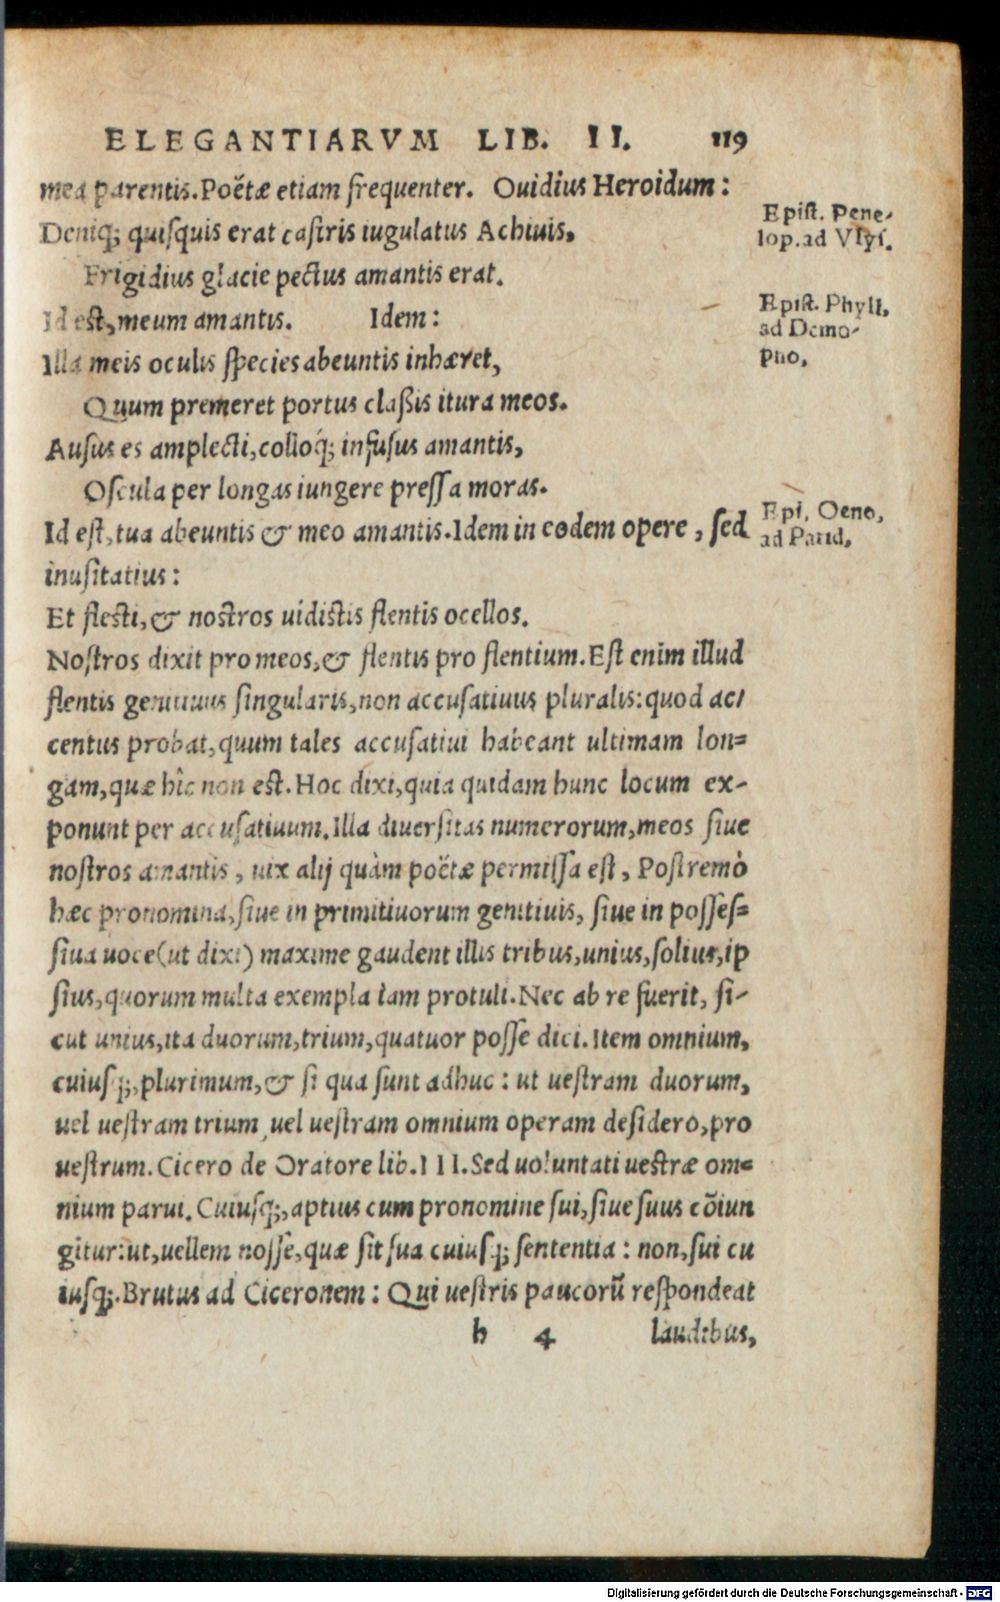 ELEGANTIARVM LIB. II. 119
mea parentis. Poëtæ etiam frequenter. Ouidius Heroidum:
Epist. Pene-
lop. ad Vlys.
Deniq; quisquis erat castris iugulatus Achiuis,
Frigidius glacie pectus amantis erat.
Id est, meum amantis. Idem:
Epist. Phyll,
ad Demo-
pho,
Illa meis oculis species abeuntis inhæret,
Quum premeret portus claßis itura meos.
Ausus es amplecti, colloq́; infusus amantis,
Oscula per longas iungere pressa moras.
Id est, tua abeuntis & meo amantis. Idem in eodem opere, sed
Epi. Oeno,
ad Parid,
inusitatius:
Et flesti, & nostros uidistis flentis ocellos.
Nostros dixit pro meos, & flentis pro flentium. Est enim illud
flentis genitiuus singularis, non accusatiuus pluralis: quod ac-
centus probat, quum tales accusatiui habeant ultimam lon=
gam, quæ hîc non est. Hoc dixi, quia quidam hunc locum ex-
ponunt per accusatiuum. Illa diuersitas numerorum, meos siue
nostros amantis, uix alij quàm poëtæ permissa est, Postremò
hæc pronomina, siue in primitiuorum genitiuis, siue in posses=
siua uoce (ut dixi) maxime gaudent illis tribus, unius, solius, ip
sius, quorum multa exempla iam protuli. Nec ab re fuerit, si-
cut unius, ita duorum, trium, quatuor posse dici. Item omnium,
cuiusq;, plurimum, & si qua sunt adhuc: ut uestram duorum,
uel uestram trium, uel uestram omnium operam desidero, pro
uestrum. Cicero de Oratore lib. III. Sed uoluntati uestræ om=
nium parui. Cuiusq;, aptius cum pronomine sui, siue suus cōiun
gitur: ut, uellem nosse, quæ sit sua cuiusq; sententia: non, sui cu
iusq;. Brutus ad Ciceronem: Qui uestris paucorū respondeat
h 4 laudibus,
Digitalisierung gefördert durch die Deutsche Forschungsgemeinschaft - DFG